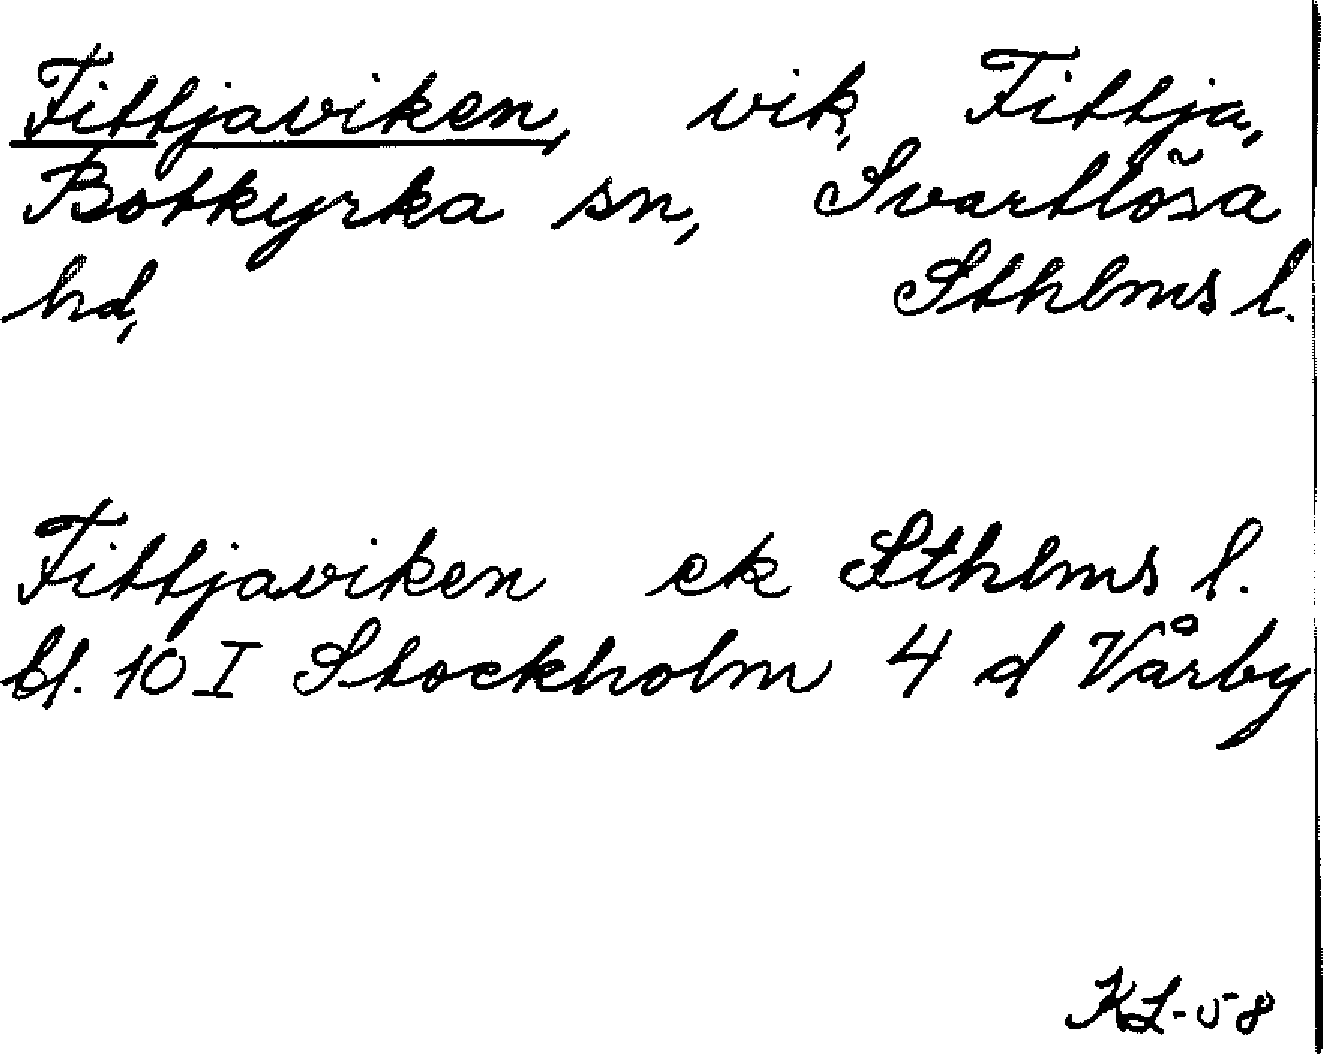 Fittjaviken, vik, Fittja,
Botkyrka sn, Svartlösa
hd, Sthlms l.
Fittjaviken ek Sthlms l.
bl. 10 I Stockholm 4 d Vårby
KL-58